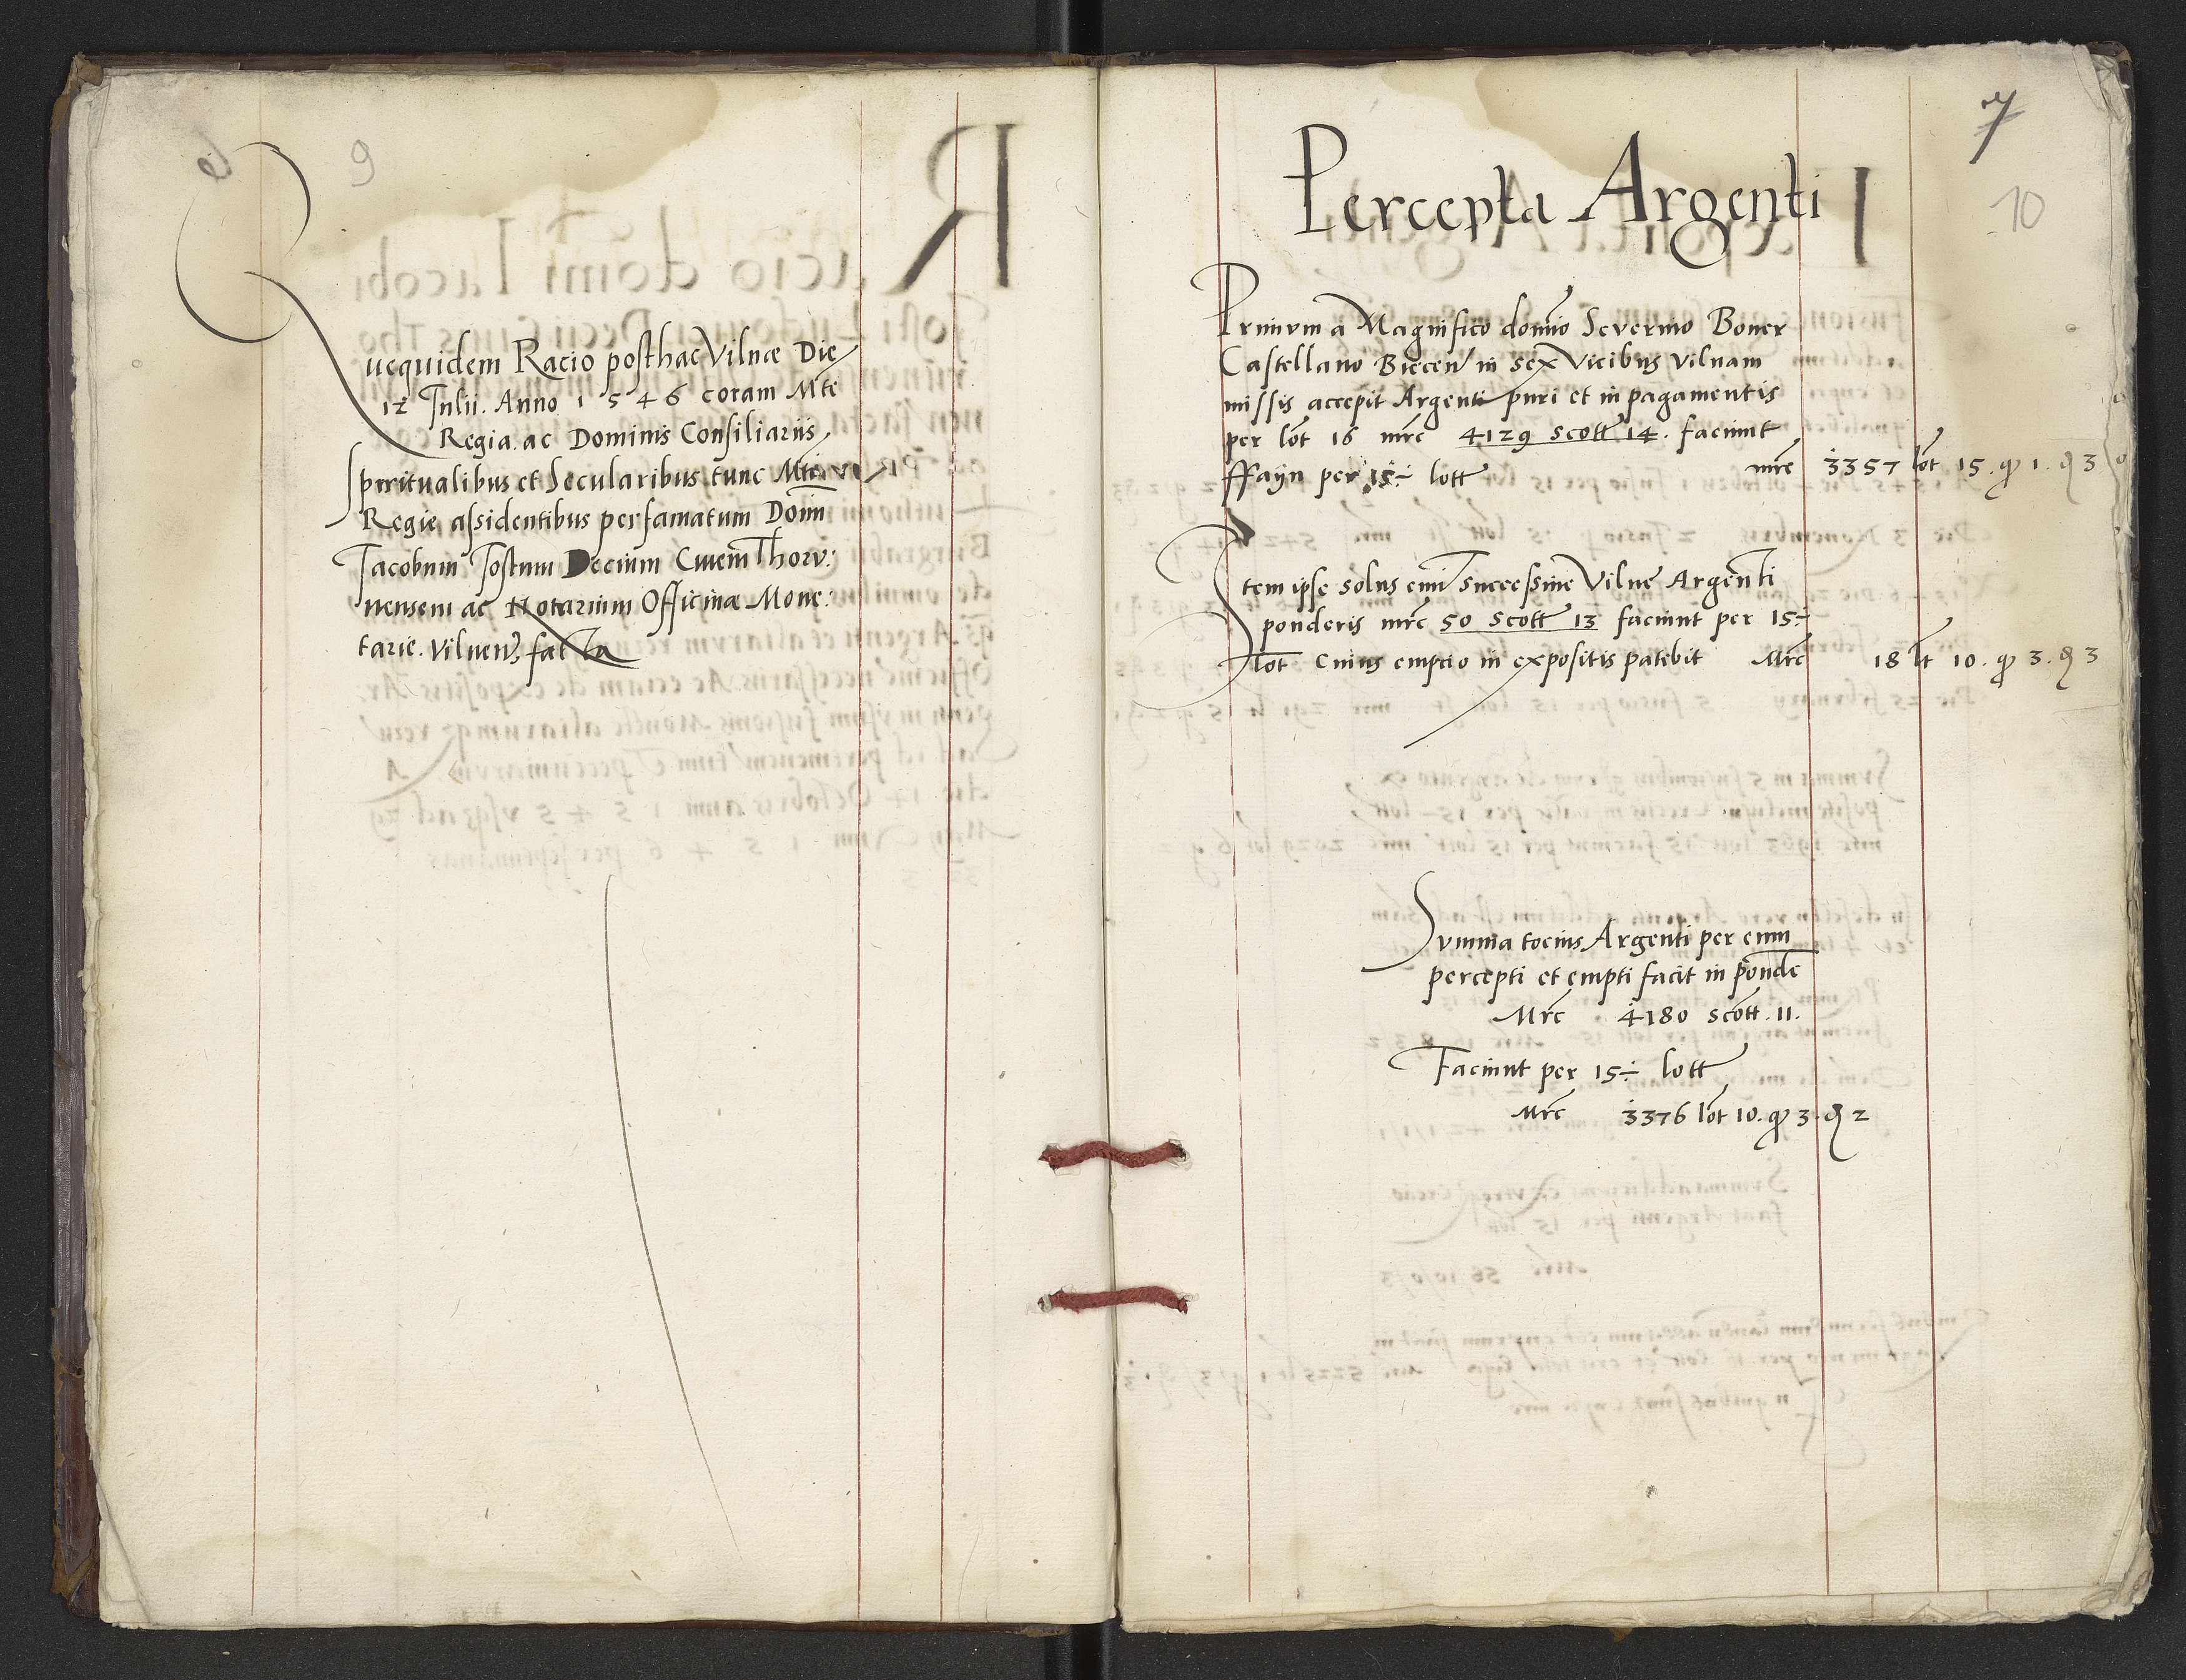 9
Quequidem Racio posthac Vilnæ Die
12 Julii. Anno 1546 coram Mte
Regia. ac Dominis Consiliariis
Spiritualibus et Secularibus tunc Mti
Regie assidentibus per famatum Domi
Jacobum Jostum Decium Civem Thoru:
nensem ac Notarium Officinæ Mone:
tarie. Vilnen facta
7
10
Percepta Argenti
Primum a Magnifico domino Severino Boner
Castellano Biecen in sex vicibus Vilnam
missis accepit Argenti puri et in pagamentis
per lot 16 mrc 4129 scott 14. faciunt
ffayn per 15÷ lott mrc 3357 lot 15. q 1. 3
Item ipse solus emit successive Vilne Argenti
ponderis mrc 50 scott 13 faciunt per 15÷
lot Cuius empcio in expositis patebit Mrc 18 lt 10. q 3. 3
Summa tocius Argenti per eum
percepti et empti facit in ponde
Mrc 4180 scott. 11.
Faciunt per 15÷ lott
Mrc 3376 lot 10. q 3. 2